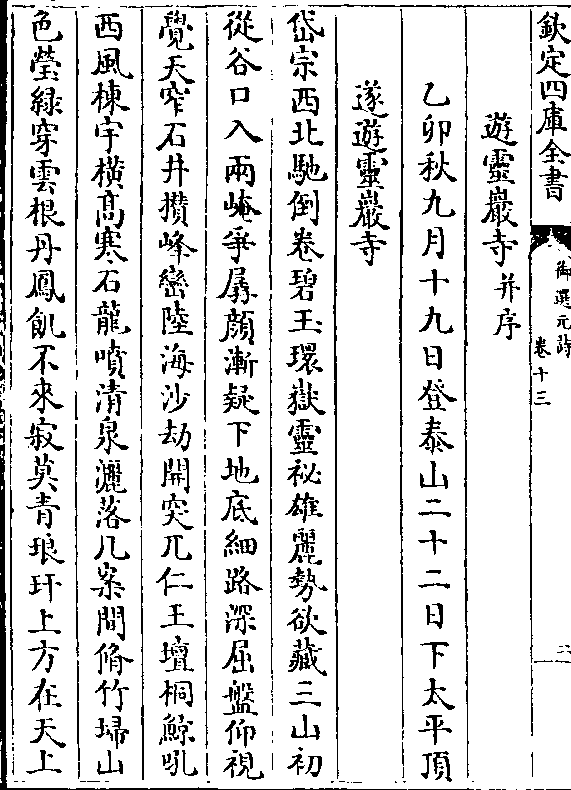 欽定四庫全書
御選元詩
卷十三
二
遊靈巖寺并序
乙卯秋九月十九日登泰山二十二日下太平頂
遂遊靈巖寺
岱宗西北馳倒卷碧玉環嶽靈祕雄麗勢欲藏三山初
從谷口入兩崦爭孱顔漸疑下地底細路深屈盤仰視
覺天窄石井攅峰巒陸海沙劫開突兀仁王壇桐鯨吼
西風棟宇横髙寒石龍噴清泉灑落几案間脩竹埽山
色瑩緑穿雲根丹鳳飢不來寂莫青琅玕上方在天上